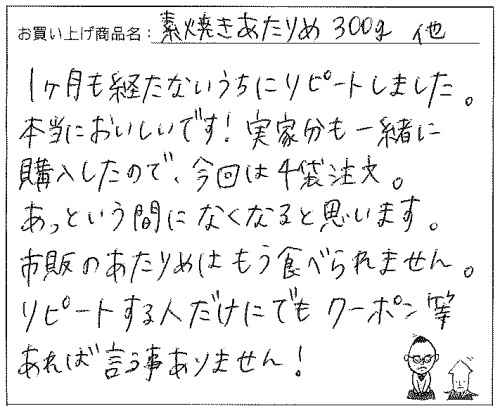 お買い上げ商品名: 素焼きあたりめ 300g 他
1ヶ月も経たないうちにリピートしました。
本当においしいです! 実家分も一緒に
購入したので、今回は4袋注文。
あっという間になくなると思います。
市販のあたりめはもう食べられません。
リピートする人だけにでもクーポン等
あれば言う事ありません!